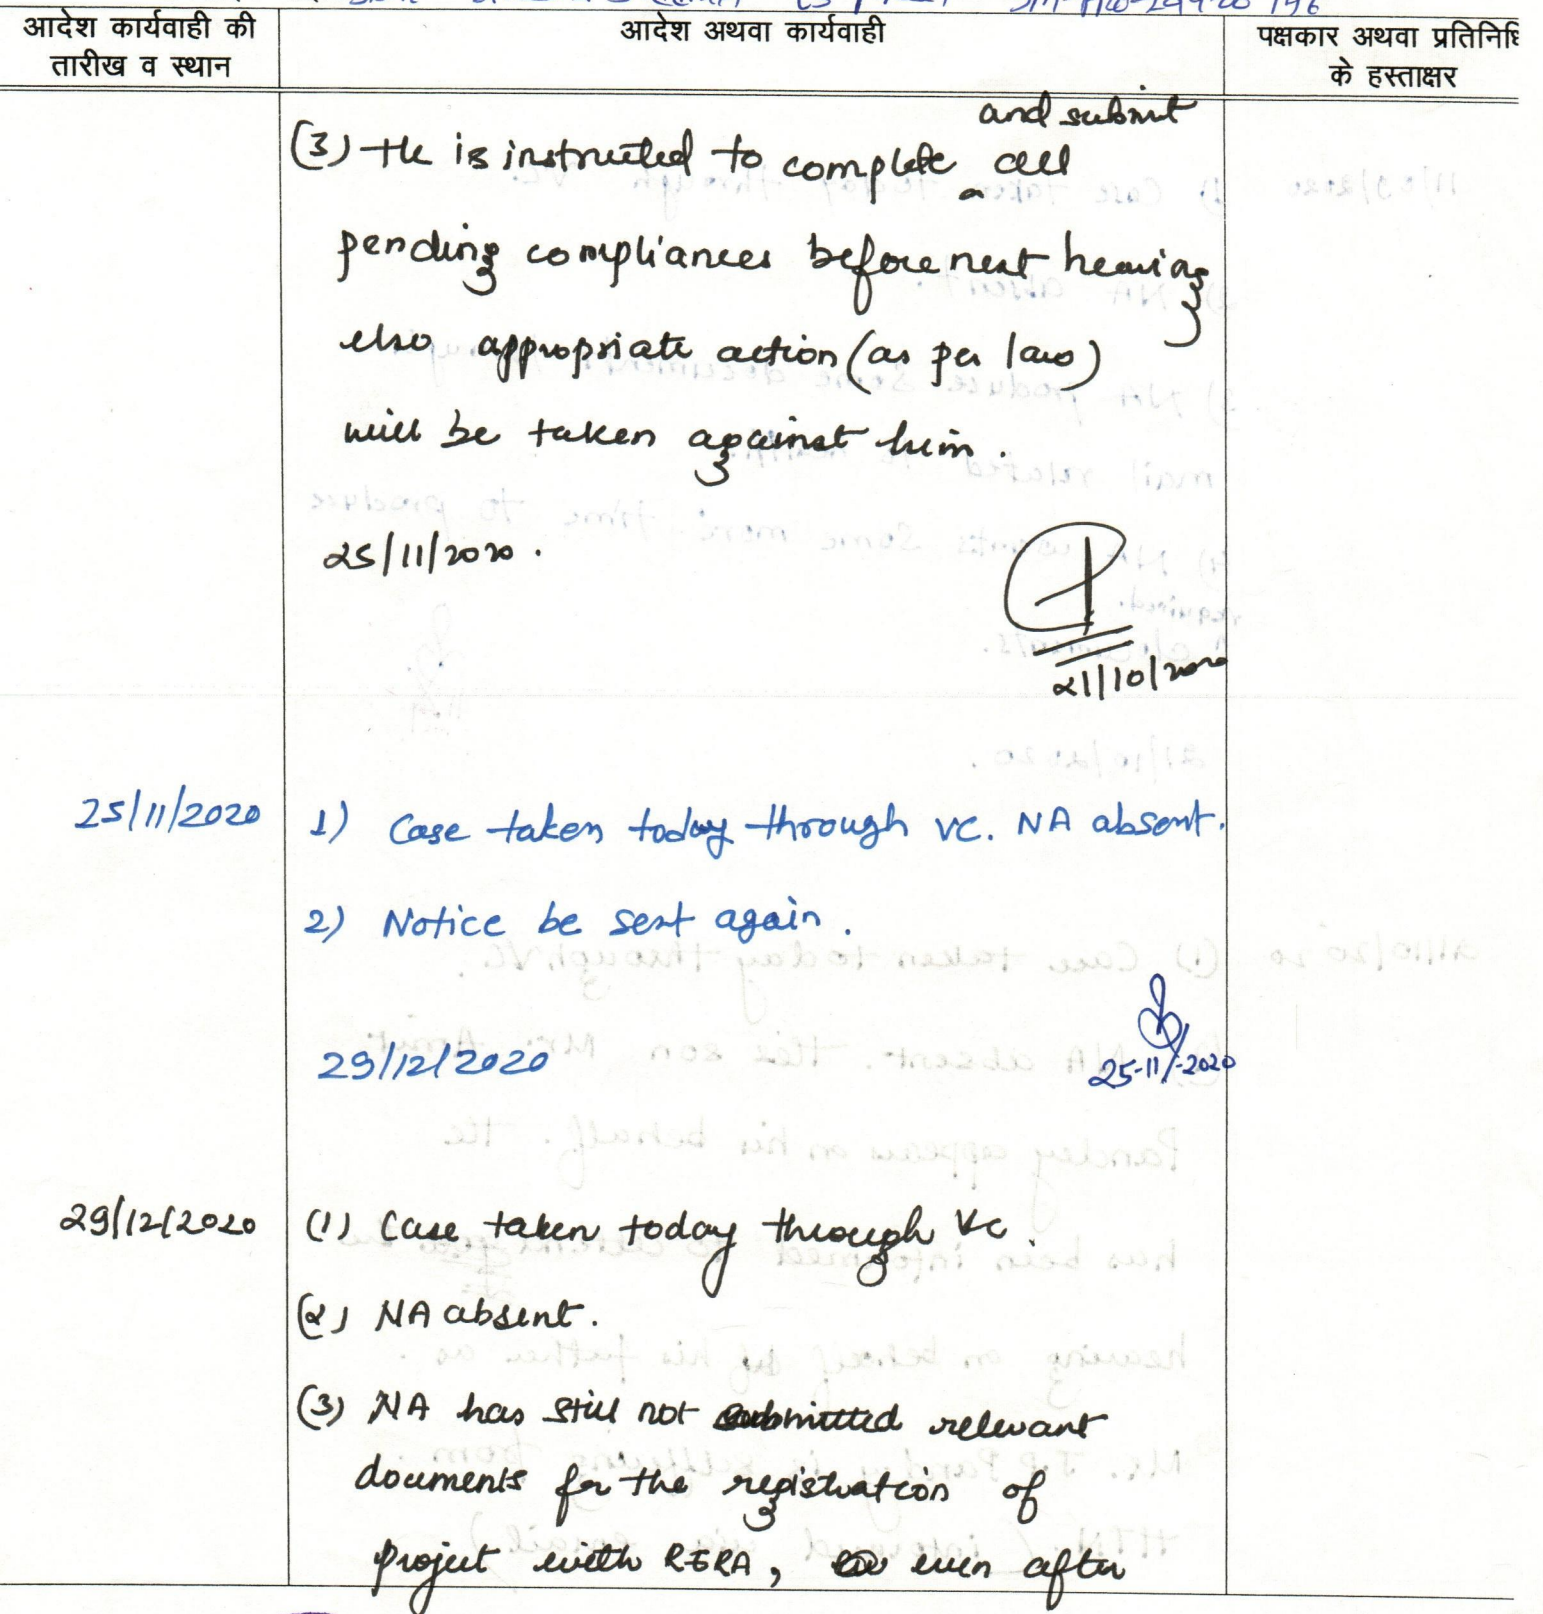 आदेश कार्यवाही की
तारीख व स्थान
आदेश अथवा कार्यवाही
पक्षकार अथवा प्रतिनिधि
के हस्ताक्षर
and submit
(3) He is instructed to complete ^ all
pending compliances before next hearing
else appropriate action (as per law)
will be taken against him.
25/11/2020.
21/10/2020
25/11/2020
1) Case taken today through VC. NA absent.
2) Notice be sent again.
29/12/2020
25-11-2020
29/12/2020
(1) Case taken today through VC.
(2) NA absent.
(3) NA has still not submitted relevant
documents for the registration of
project with RERA, even after